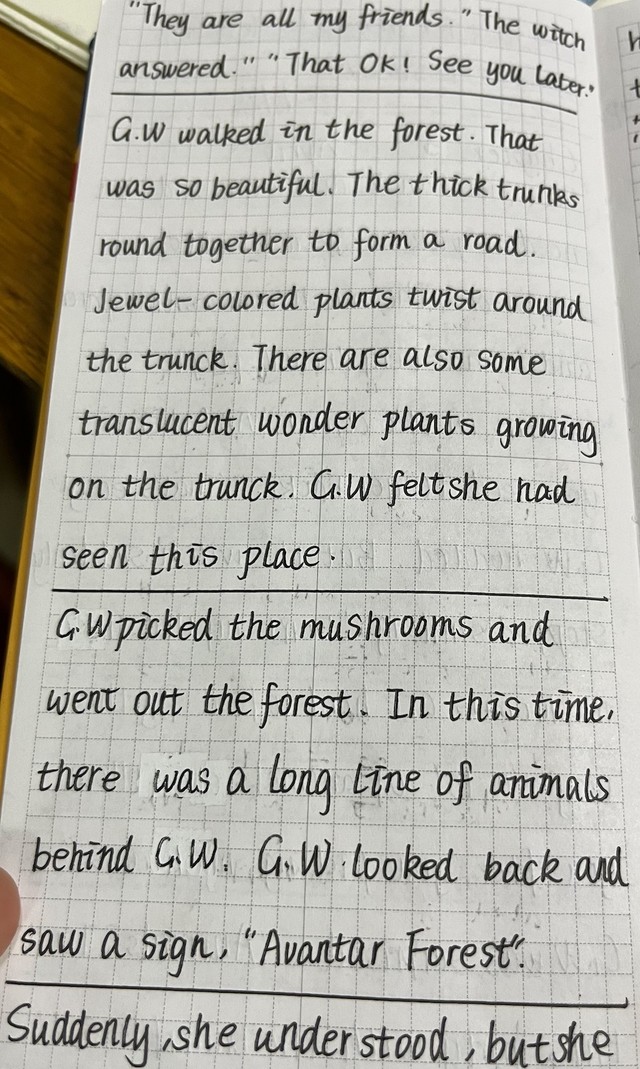 "They are all my friends." The witch
answered." "That OK! See you Later."
G.W walked in the forest. That
was so beautiful. The thick trunks
round together to form a road.
Jewel-colored plants twist around
the trunck. There are also some
translucent wonder plants growing
on the trunck. G.W felt she had
seen this place.
G.W picked the mushrooms and
went out the forest. In this time,
there was a long line of animals
behind G.W. G.W looked back and
saw a sign, "Avantar Forest".
Suddenly, she understood, but she